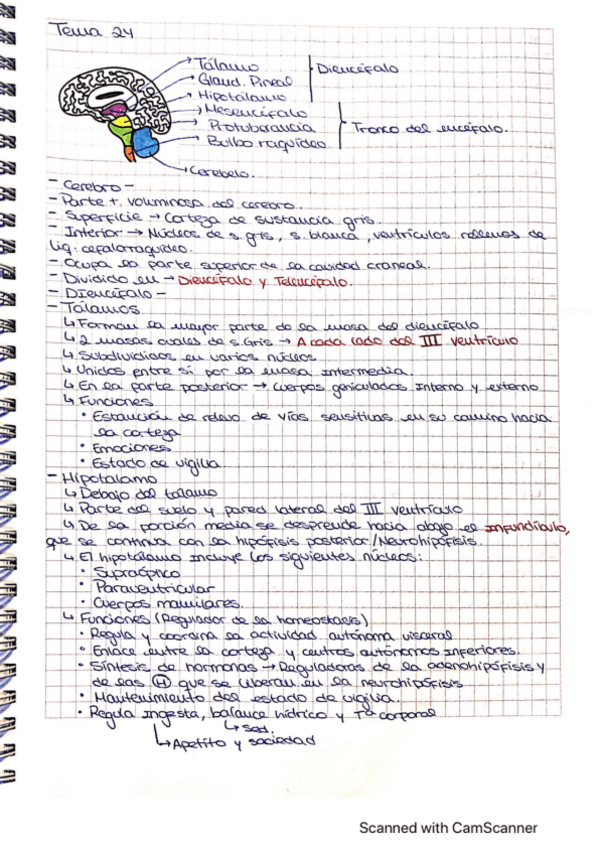 Tema 24
Tálamo
Gland. Pineal
Hipotálamo
Diencéfalo
Mesencéfalo
Protuberancia
Bulbo raquídeo
Tronco del encéfalo.
Cerebelo.
- Cerebro -
- Parte + voluminosa del cerebro.
- Superficie → Corteza de sustancia gris.
- Interior → Núcleos de s. gris, s. blanca, ventrículos rellenos de
liq. cefalorraquídeo.
- Ocupa la parte superior de la cavidad craneal.
- Dividido en → Diencéfalo y Telencéfalo.
- Diencéfalo -
- Tálamos
↳ Forman la mayor parte de la masa del diencéfalo
↳ 2 masas ovales de s. Gris → A cada lado del III ventrículo
↳ Subdividiaos en varios núcleos
↳ Unidos entre sí por la masa intermedia.
↳ En la parte posterior → cuerpos geniculados interno y externo
↳ Funciones
• Estanción de relevo de vías sensitivas en su camino hacia
la corteza
• Emociones
• Estado de vigilia.
- Hipotálamo
↳ Debajo del tálamo
↳ Parte del suelo y pared lateral del III ventrículo
↳ De la porción media se desprende hacia abajo el infundíbulo,
que se continua con la hipófisis posterior/Neurohipófisis.
↳ El hipotálamo incluye los siguientes núcleos:
• Supraóptico
• Paraventricular
• Cuerpos mamilares.
↳ Funciones (Regulador de la homeostasis)
• Regula y coordina la actividad autónoma visceral
• Enlace entre la corteza y centros autónomos inferiores.
• Síntesis de hormonas → Reguladoras de la adenohipófisis y
de las (H) que se liberan en la neurohipófisis
• Mantenimiento del estado de vigilia.
• Regula Ingesta, balance hídrico y Tª corporal
↳ Sed.
↳ Apetito y sociedad
Scanned with CamScanner